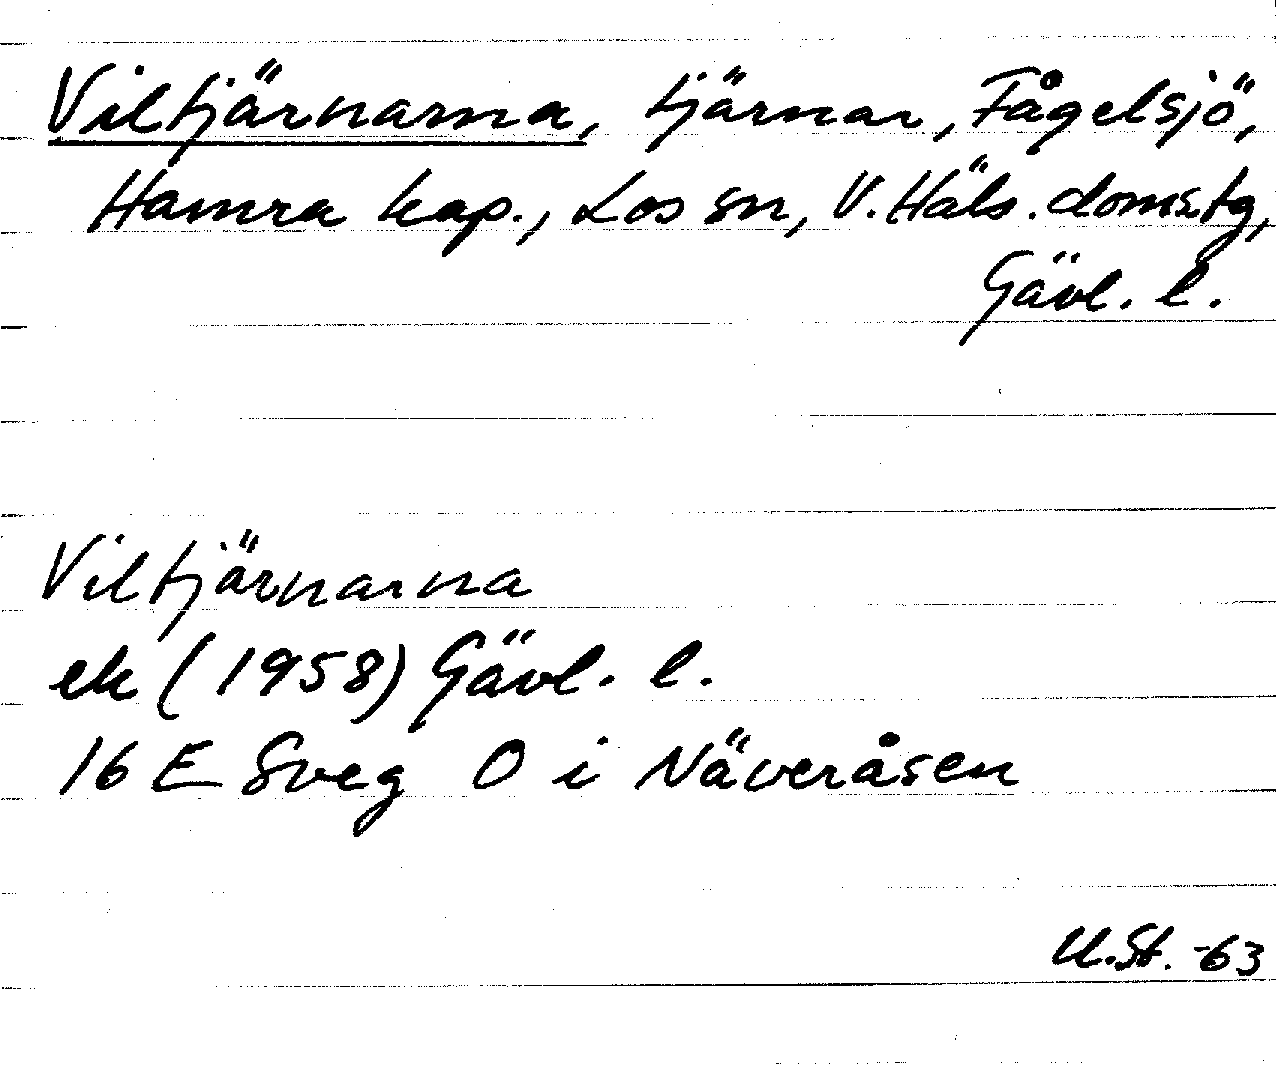 Viltjärnarna, tjärnar, Fågelsjö,
Hamra kap., Los sn, V. Häls. doms.tg,
Gävl. l.
Viltjärnarna
ek (1958) Gävl. l.
16 E Sveg O i Näveråsen
U.St. -63